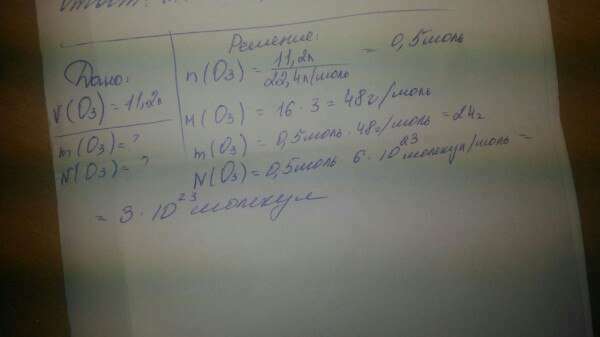 Решение:
Дано:
V(O₃) = 11,2л
m(O₃) = ?
N(O₃) = ?
n(O₃) = 11,2л / 22,4л/моль = 0,5моль
M(O₃) = 16 · 3 = 48г/моль
m(O₃) = 0,5моль · 48г/моль = 24г
N(O₃) = 0,5моль 6 · 10²³ молекул/моль =
= 3 · 10²³ молекул